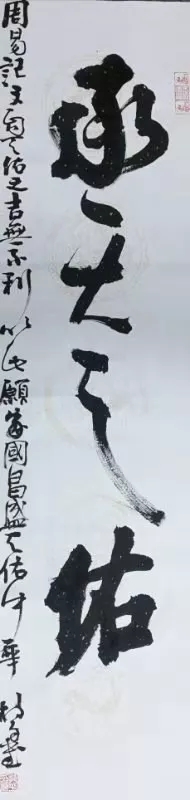 承天之佑
周易記文自天佑之吉無不利以此願家國昌盛天佑中華